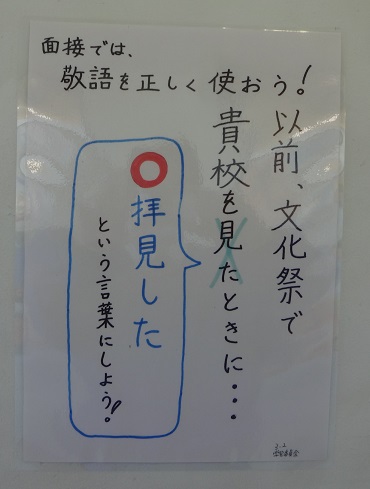 面接では、
敬語を正しく使おう!
以前、文化祭で
貴校を見たときに・・・
拝見した
という言葉にしよう!。